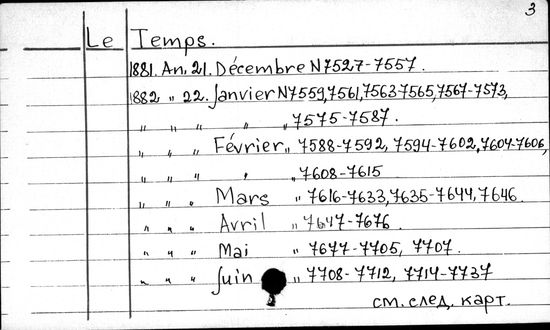 3
Le Temps.
1881. An. 21. Décembre N7527-7557.
1882 " 22. Janvier N7559,7561,7563-7565,7567-7573,
" " " " " 7575-7587.
" " " Février " 7588-7592, 7594-7602, 7604-7606,
" " " " " 7608-7615
" " " Mars " 7616-7633, 7635-7644, 7646.
" " " Avril " 7647-7676.
" " " Mai " 7677-7705, 7707.
" " " Juin " 7708-7712, 7714-7737
см. след. карт.